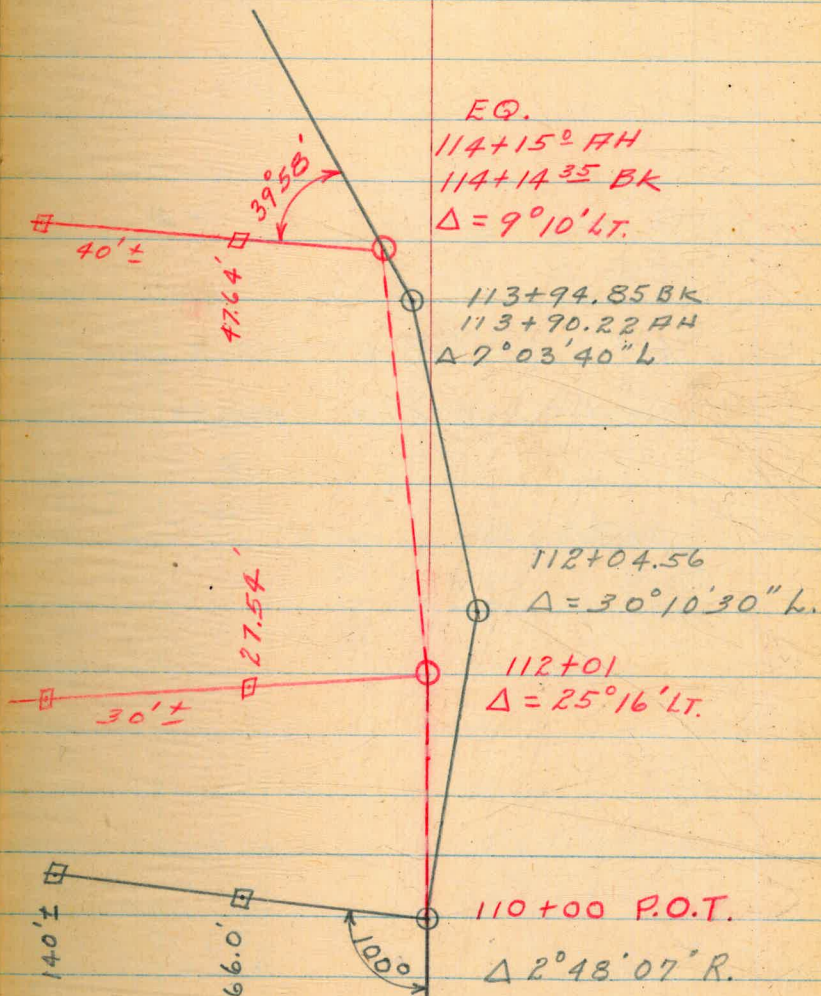 EQ.
114+15º AH
114+14 35 BK
Δ = 9°10' LT.
39°58'
40'±
47.64'
113+94.85 BK
113+90.22 AH
Δ 7°03'40" L
112+04.56
Δ = 30°10'30" L.
27.54'
112+01
Δ = 25°16' LT.
30'±
110+00 P.O.T.
Δ 2°48'07" R.
100°
140'±
66.0'